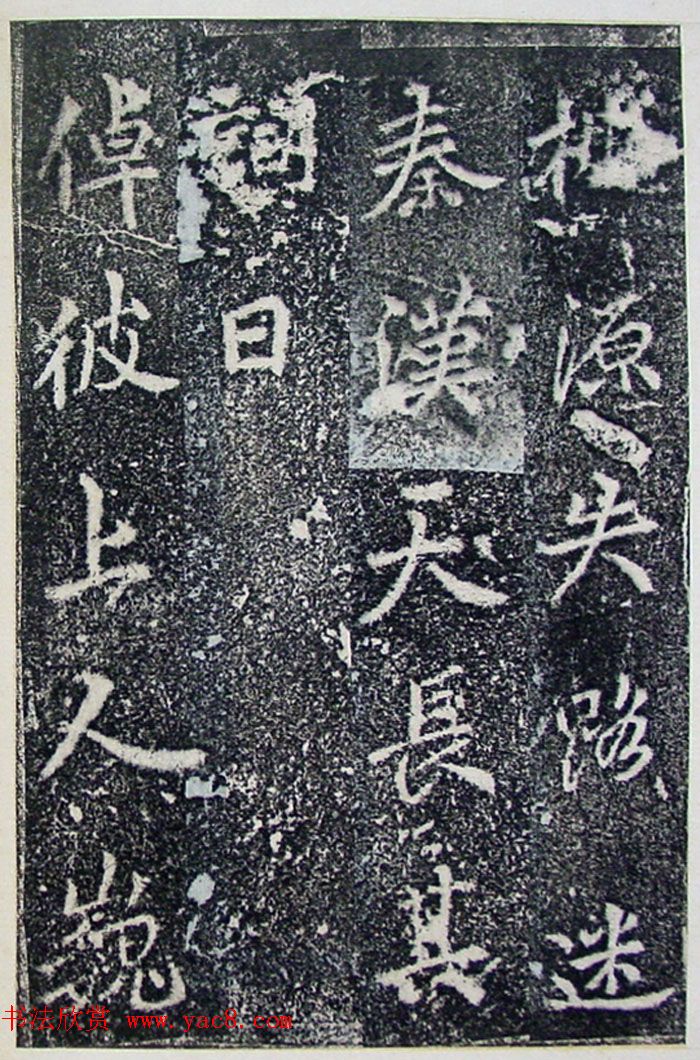 桃源失路迷
秦漢天長其
詞曰
倬彼上人巍
书法欣赏 www.yac8.com